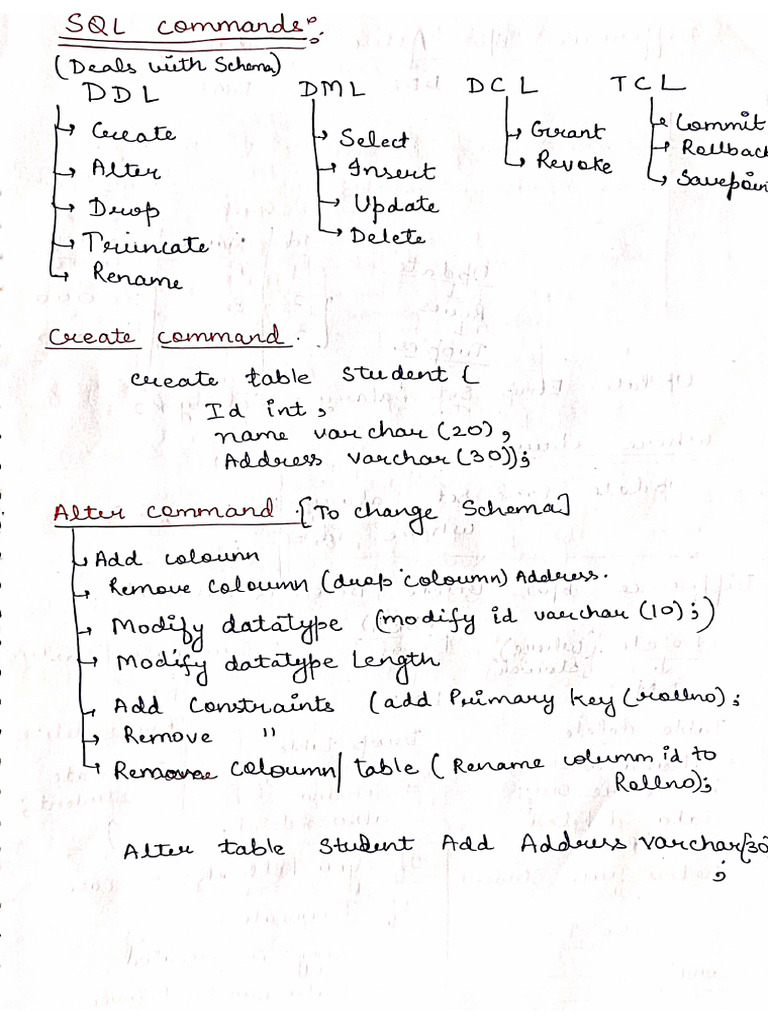 SQL commands:
(Deals with Schema)
DDL DML DCL TCL
Create Select Grant Commit
Alter Insert Revoke Rollback
Drop Update Savepoin
Truncate Delete
Rename
Create command.
Create table Student (
Id int,
name varchar(20),
Address varchar(30));
Alter command. [To change Schema]
Add coloumn
Remove coloumn (drop coloumn) Address.
Modify datatype (modify id varchar(10);)
Modify datatype Length
Add Constraints (add Primary key (rollno);
Remove "
coloumn/table (Rename column id to
Rollno);
Alter table Student Add Address varchar(30
;